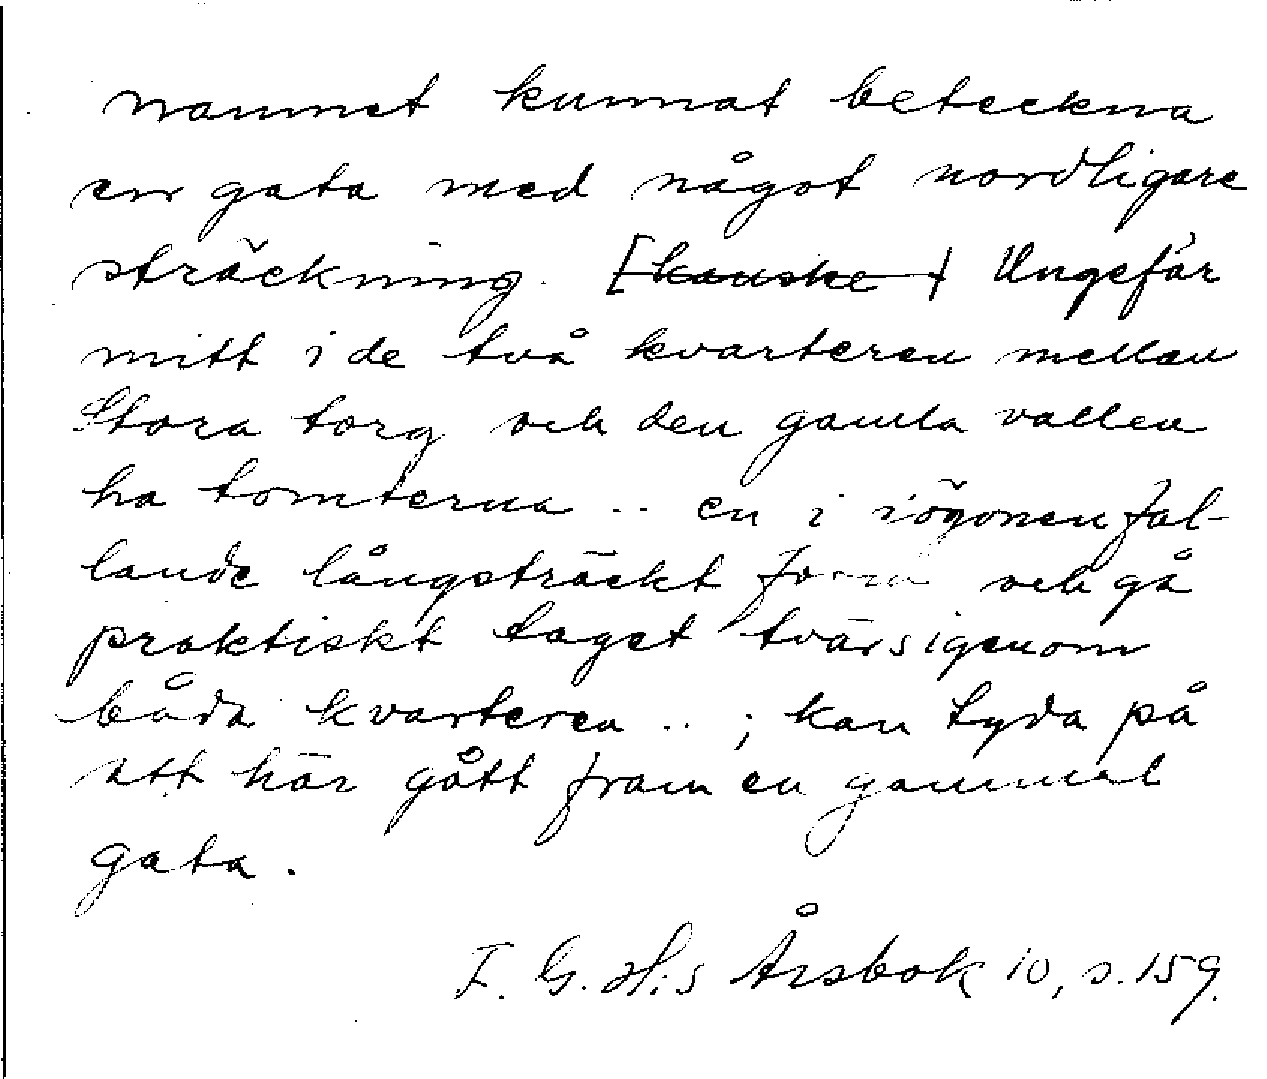 namnet kunnat beteckna
en gata med något nordligare
sträckning. [kanske] Ungefär
mitt i de två kvarteren mellan
Stora torg och den gamla vallen
ha tomterna .. en i iögonenfal-
lande långsträckt form och gå
praktiskt taget tvärsigenom
båda kvarteren .. ; kan tyda på
att här gått fram en gammal
gata.
F. G. H:s Årsbok 10, s. 159.